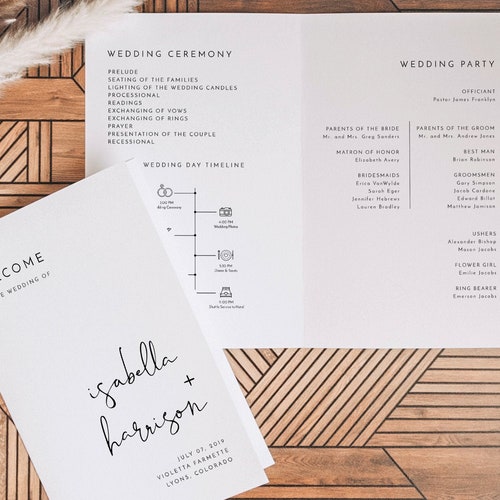 WEDDING CEREMONY
PRELUDE
SEATING OF THE FAMILIES
LIGHTING OF THE WEDDING CANDLES
PROCESSIONAL
READINGS
EXCHANGING OF VOWS
EXCHANGING OF RINGS
PRAYER
PRESENTATION OF THE COUPLE
RECESSIONAL
WEDDING DAY TIMELINE
Ceremony
4:00 PM
Wedding Photos
5:30 PM
Dinner & Toasts
9:00 PM
Shuttle Service to Hotel
WEDDING PARTY
OFFICIANT
Pastor James Franklyn
PARENTS OF THE BRIDE
Mr. and Mrs. Greg Sanders
PARENTS OF THE GROOM
Mr. and Mrs. Andrew Jones
MATRON OF HONOR
Elizabeth Avery
BEST MAN
Brian Robirson
BRIDESMAIDS
Erica VanWylde
Sarah Eger
Jennifer Hebrews
Lauren Bradley
GROOMSMEN
Gary Simpson
Jacob Cardene
Edward Billot
Matthew Jamison
USHERS
Alexander Bishop
Mason Jacobs
FLOWER GIRL
Emilie Jacobs
RING BEARER
Emerson Jacobs
COME
WEDDING OF
isabella
+
harrison
JULY 07, 2019
VIOLETTA FARMETTE
LYONS, COLORADO